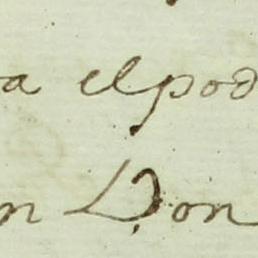 a elpod
n Don